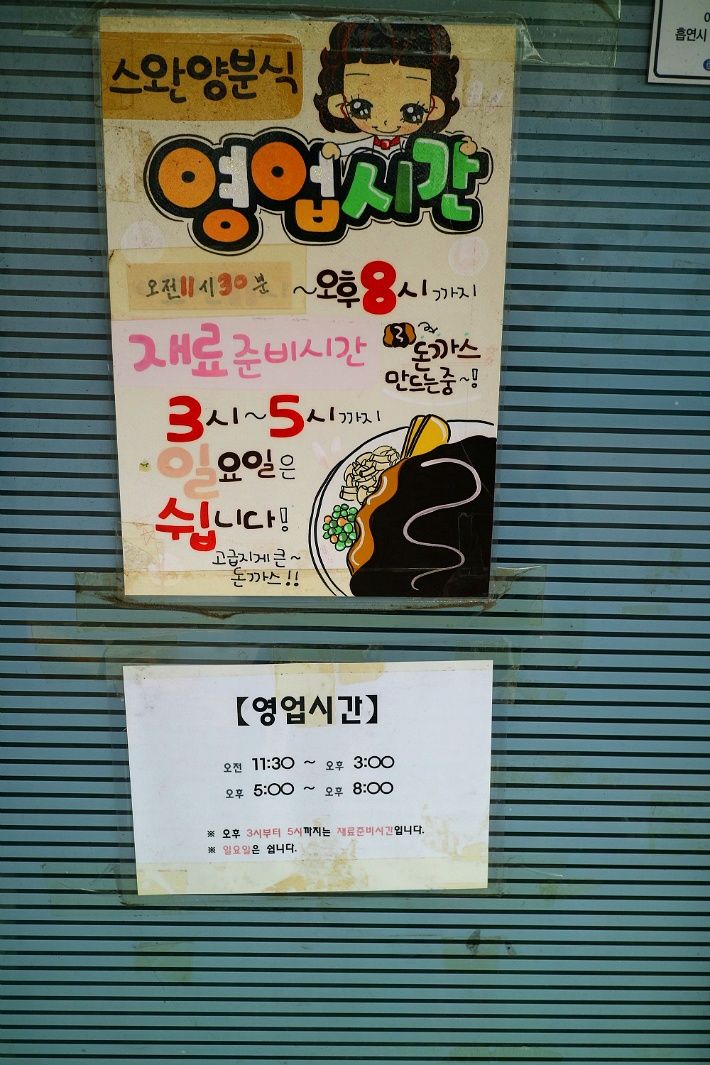 스완양분식
영업시간
오전11시30분 ~오후8시까지
재료준비시간
돈까스
만드는중~!
3시~5시까지
일요일은
쉽니다!
고급지게큰~
돈까스!!
【영업시간】
오전 11:30 ~ 오후 3:00
오후 5:00 ~ 오후 8:00
※ 오후 3시부터 5시까지는 재료준비시간입니다.
※ 일요일은 쉽니다.
흡연시